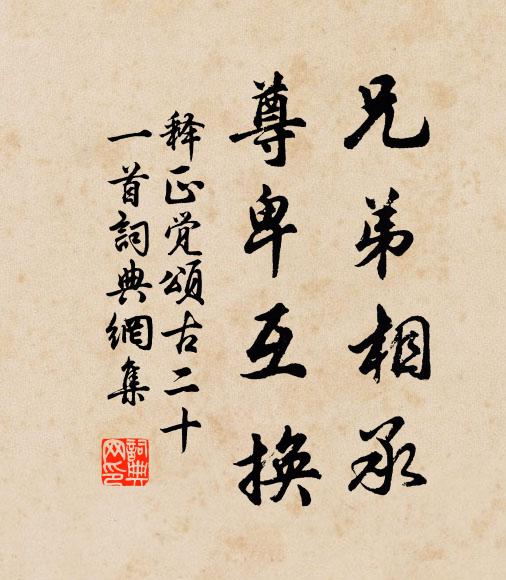 兄弟相承
尊卑互換
释正觉頌古二十
一首詞典網集
詞典
网印